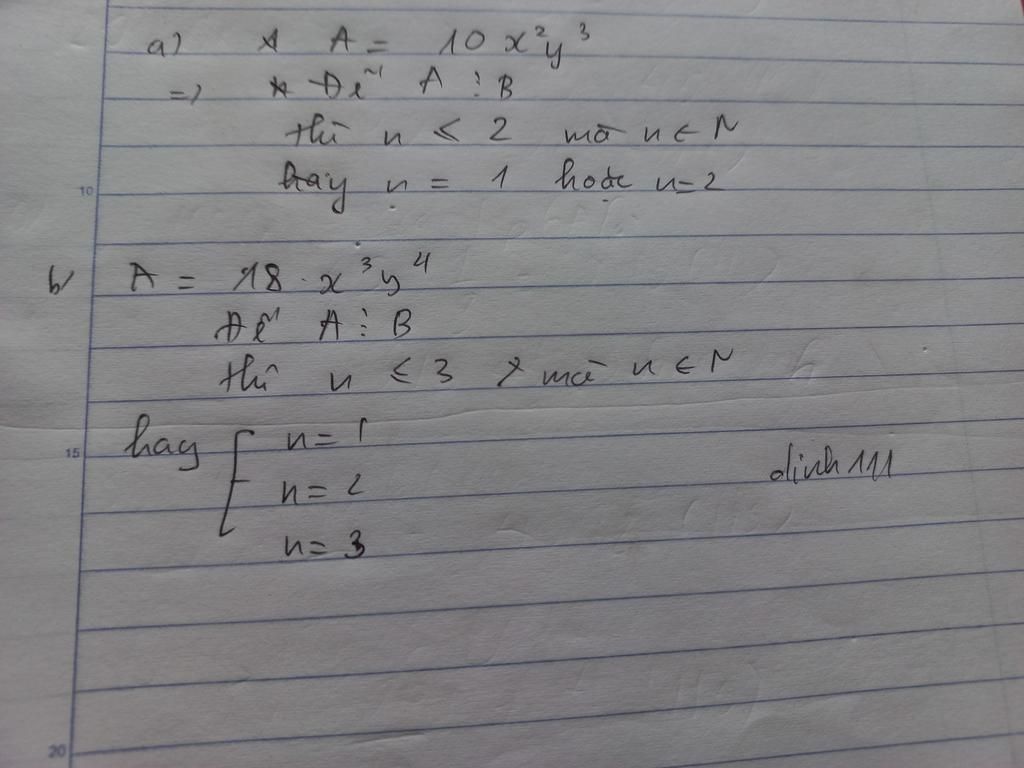 a) A = 10 x²y³
=> * Để A ⋮ B
thì n < 2 mà n ∈ N
hay n = 1 hoặc n=2
10
b/ A = 18 · x³y⁴
Để A ⋮ B
thì n ≤ 3 mà n ∈ N
hay [ n = 1
15
n = 2
n = 3
dinh111
20